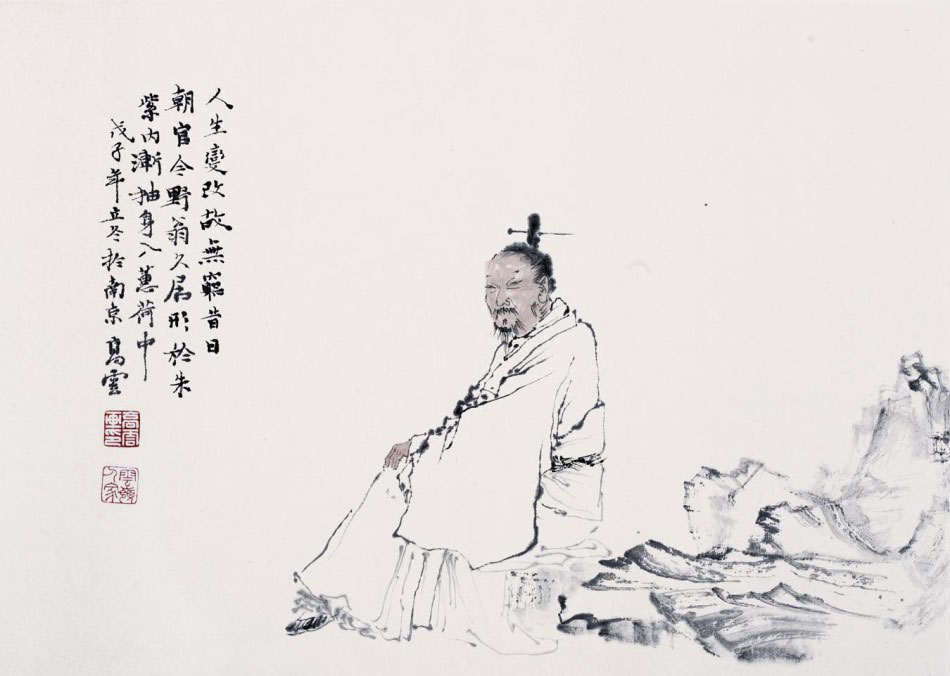 人生變改故無窮昔日
朝官今野翁久居形於朱
紫内漸抽身入蕙荷中
戊子年立冬於南京高雲